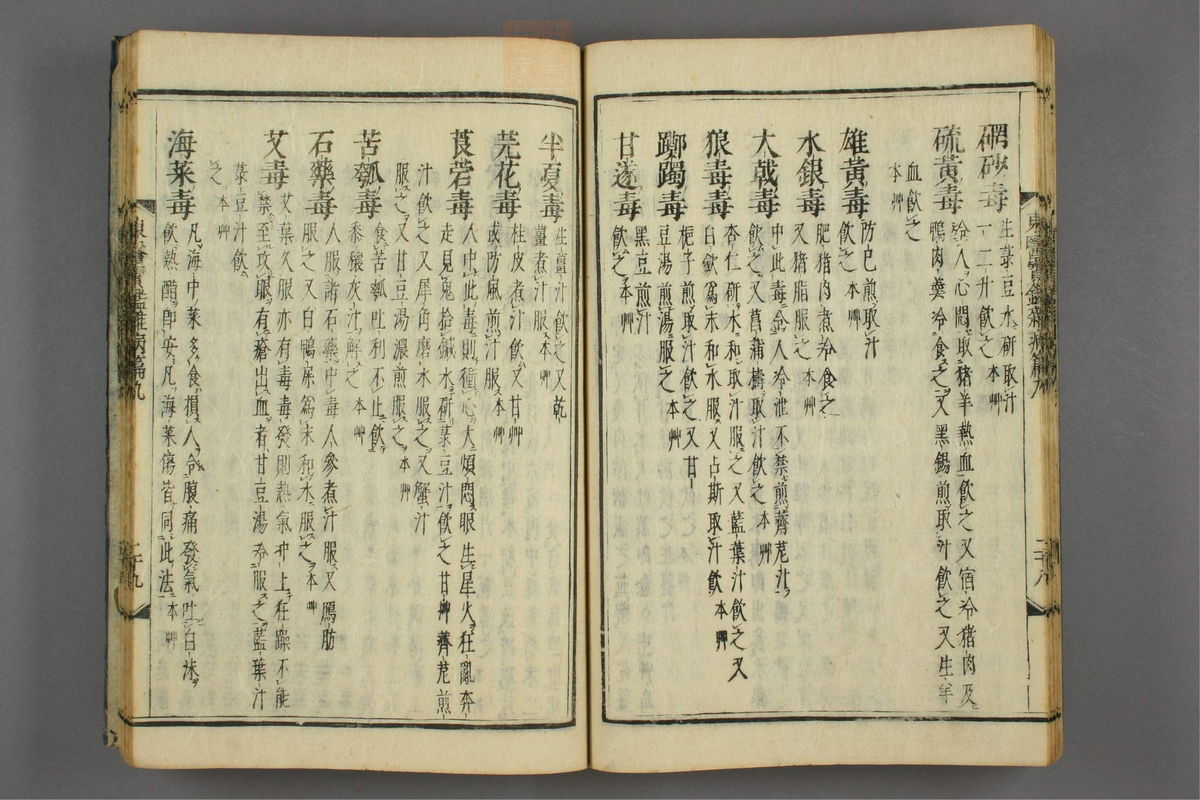 東醫寶鑑雜病篇九 二十八
硇砂毒 生菉豆水研取汁
一二升飲之 本艸
硫黃毒 令人心悶取猪羊熱血飲之又宿冷猪肉及
鴨肉羹冷食之又黑錫煎取汁飲之又生羊
血飲之
本艸
雄黃毒 防已煎取汁
飲之 本艸
水銀毒 肥猪肉煮冷食之
又猪脂服之 本艸
大戟毒 中此毒令人冷泄不禁煎薺苨汁
飲之又菖蒲擣取汁飲之 本艸
狼毒毒 杏仁研水和取汁服之又藍葉汁飲之又
白斂爲末和水服又占斯取汁飲 本艸
躑躅毒 梔子煎取汁飲之又甘
豆湯煎湯服之 本艸
甘遂毒 黑豆煎汁
飲之 本艸
半夏毒 生薑汁飲之又乾
薑煮汁服 本艸
芫花毒 桂皮煮汁飲又甘艸
或防風煎汁服 本艸
莨菪毒 人中此毒則衝心大煩悶眼生星火狂亂奔
走見鬼拾鍼水研菉豆汁飲之甘艸薺苨煎
汁飲之又犀角磨水服之又蟹汁
服之又甘豆湯濃煎服之 本艸
苦瓠毒 食苦瓠吐利不止飲
黍穰灰汁解之 本艸
石藥毒 人服諸石藥中毒人參煮汁服又鴈肪
服之又白鴨屎爲末和水服之 本艸
艾毒 艾葉久服亦有毒毒發則熱氣冲上狂躁不能
禁至攻眼有瘡出血者甘豆湯冷服之藍葉汁
菉豆汁飲
之 本艸
海菜毒 凡海中菜多食損人令腹痛發氣吐白沫
飲熱醋即安凡海菜傷皆同此法 本艸
東醫寶鑑雜病篇九 二十九